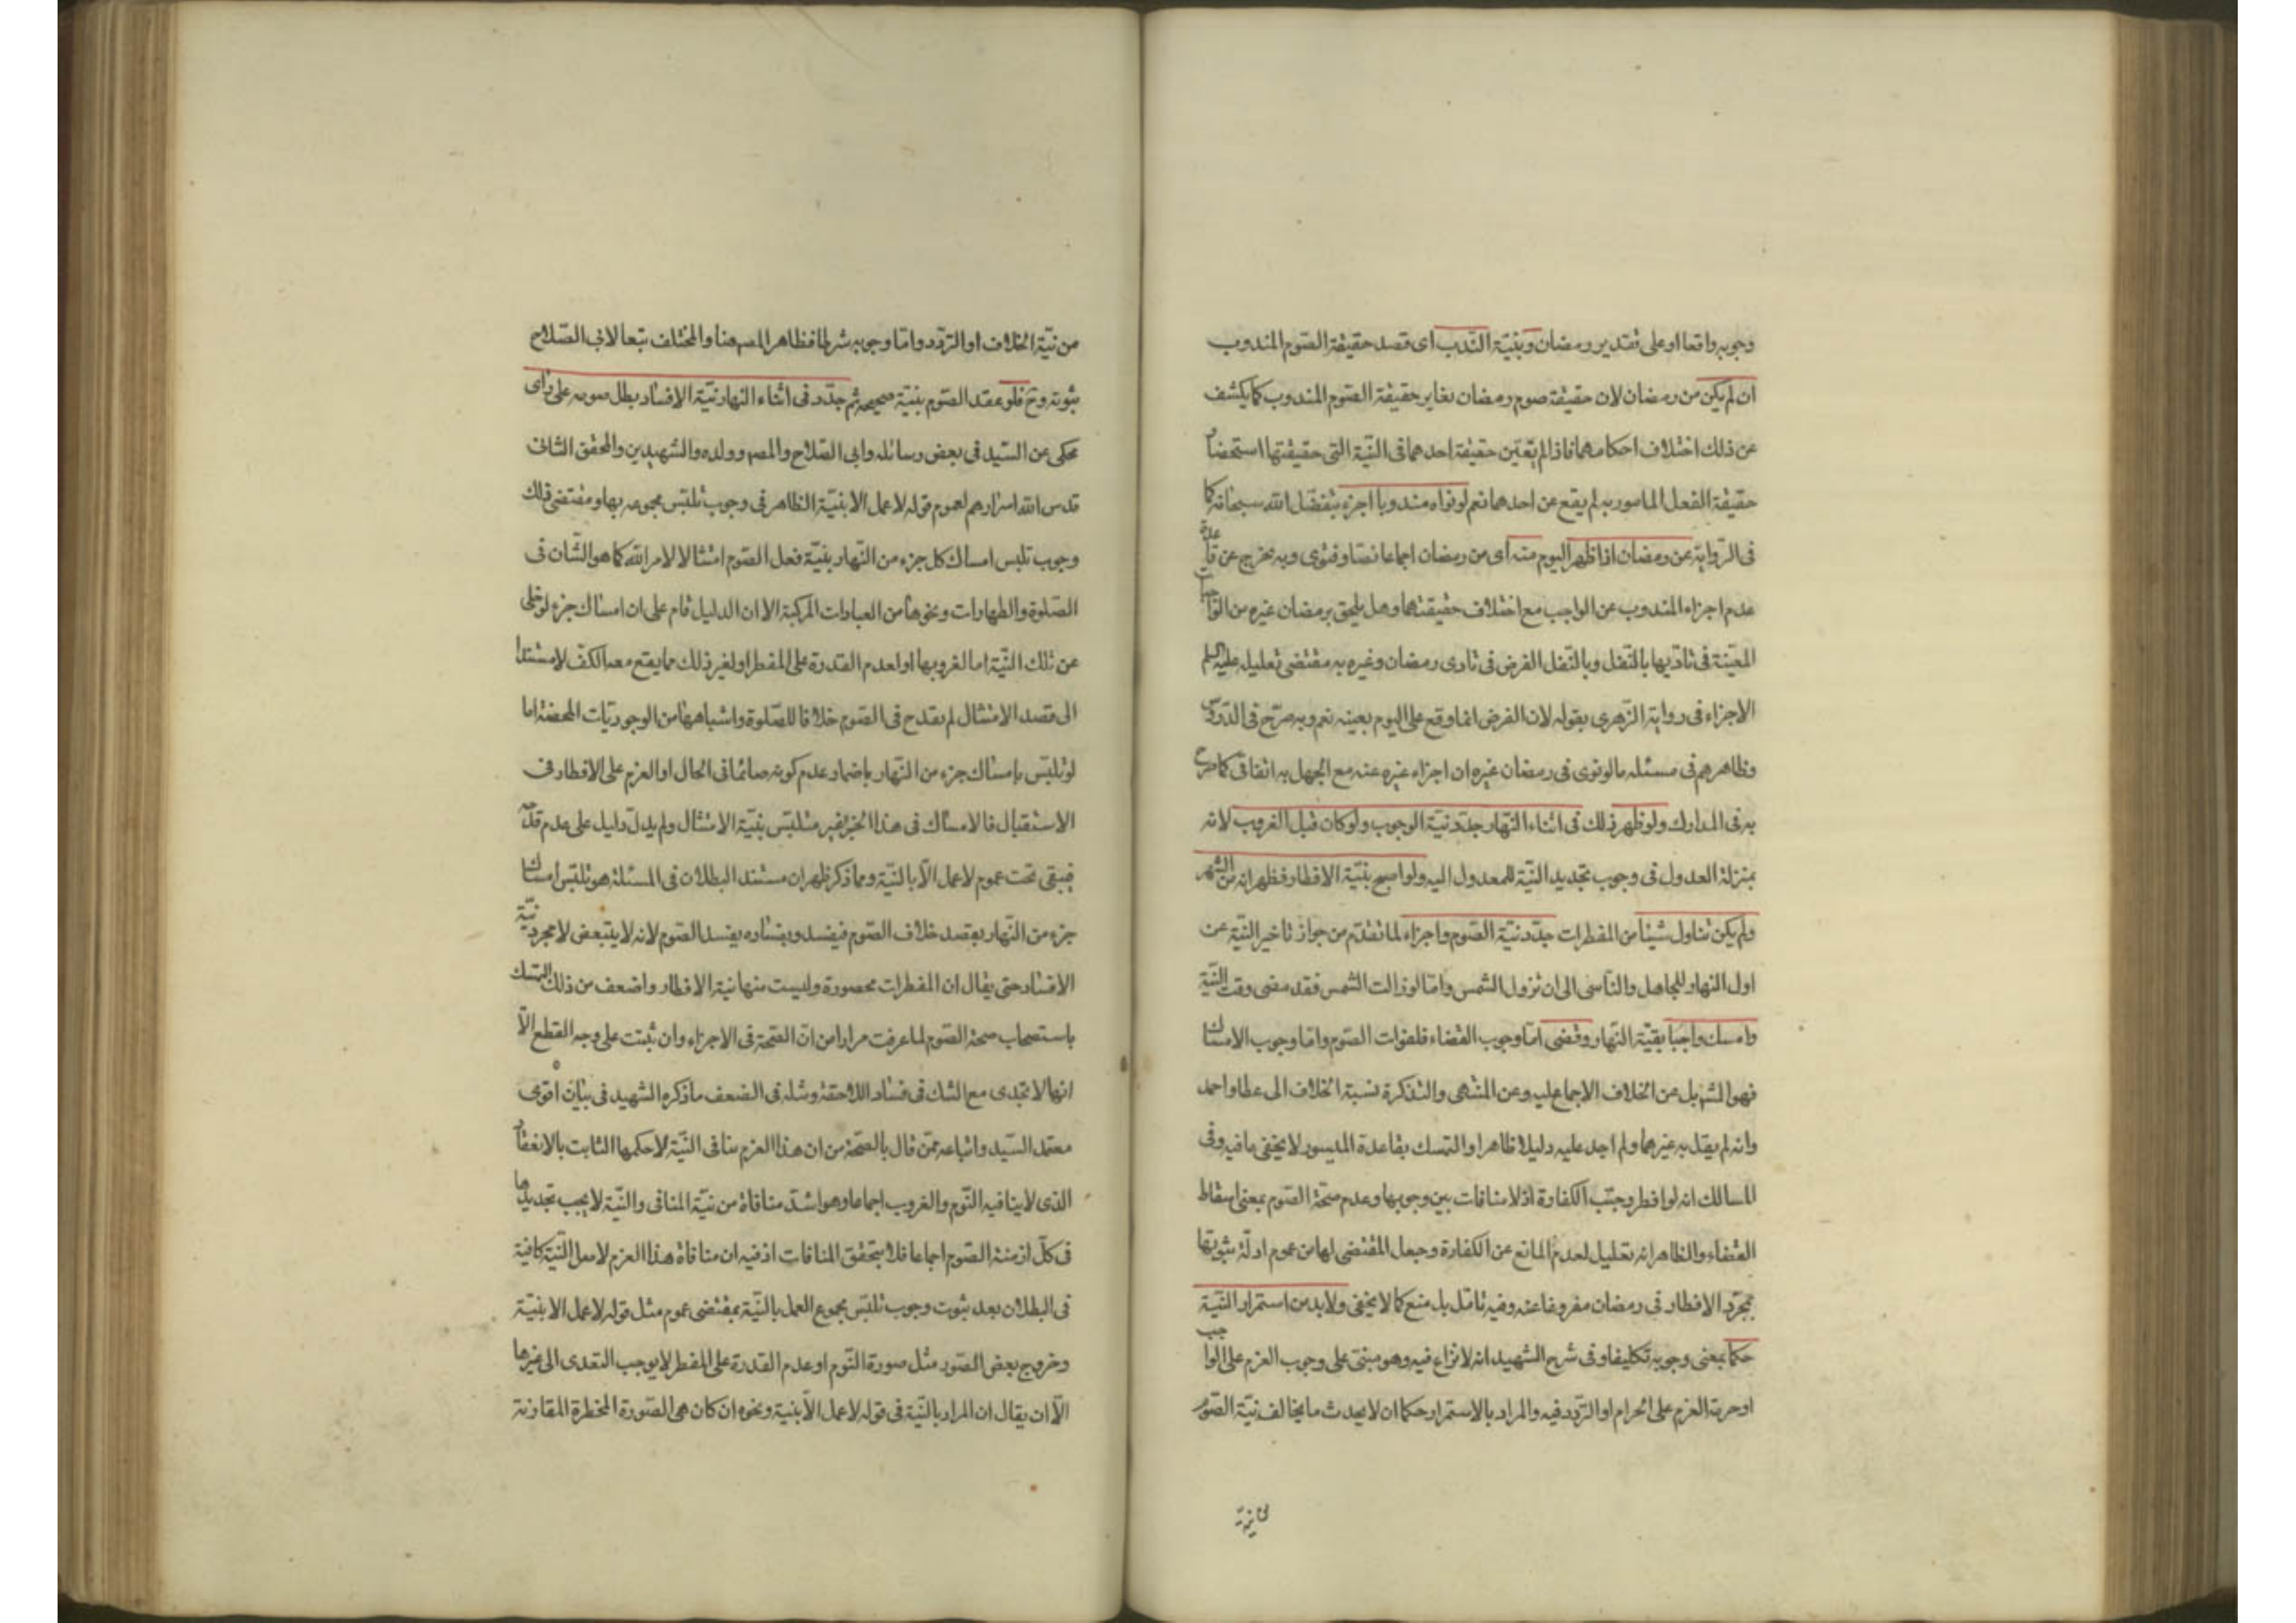 وجوبه واقعا او على تقدير رمضان وبنيّة النّدب اى قصد حقيقة الصّوم المندوب
ان لم يكن من رمضان لان حقيقة صوم رمضان يغاير حقيقة الصّوم المندوب كما يكشف
عن ذلك اختلاف احكامهما فاذا لم يتعيّن حقيقة احدهما فى النّية التى حقيقتها استحضار
حقيقة الفعل المامور به لم يقع عن احدهما نعم لو نواه مندوبا اجزء بتفضّل الله سبحانه كما
فى الرّواية عن رمضان اذا ظهر اليوم منه اى من رمضان اجماعا نصّا وفتوى وبه يخرج عن قاعدة
عدم اجزاء المندوب عن الواجب مع اختلاف حقيقتهما وهل يلحق برمضان غيره من الواجبات
المعيّنة فى تادّيها بالنّفل وبالنّفل الفرض فى تادى رمضان وغيره به مقتضى تعليله عليه السلم
الاجزاء فى رواية الزّهرى بقوله لان الفرض انما وقع على اليوم بعينه نعم وبه صرّح فى الدّروس
وظاهرهم فى مسئلة ما لو نوى فى رمضان غيره ان اجزاء غيره عنه مع الجهل به اتفاقى كما صرّح
به فى المدارك ولو ظهر ذلك فى اثناء النّهار جدّد نيّة الوجوب ولو كان قبل الغروب لانه
بمنزلة العدول فى وجوب تجديد النّية للمعدول اليه ولو اصبح بنيّة الافطار فظهر انه من الشهر
ولم يكن تناول شيئا من المفطرات جدّد نيّة الصّوم واجزاء لما تقدّم من جواز تاخير النّية عن
اول النهار للجاهل والنّاسى الى ان تزول الشمس وامّا لو زالت الشمس فقد مضى وقت النّيّة
وامسك واجبا بقيّة النّهار وقضى امّا وجوب القضاء فلفوات الصّوم وامّا وجوب الامساك
فهو المشهور بل عن الخلاف الاجماع عليه وعن المنتهى والتذكرة نسبة الخلاف الى عطا واحمد
وانه لم يقل به غيرهما ولم اجد عليه دليلا ظاهرا والتمسك بقاعدة الميسور لا يخفى ما فيه وفى
المسالك انه لو افطر وجبت الكفارة اذ لا منافات بين وجوبها وعدم صحّة الصّوم بمعنى اسقاط
القضاء والظاهر انه تعليل لعدم المانع عن الكفارة وجعل المقتضى لها من عموم ادلّة ثبوتها
بمجرّد الافطار فى رمضان مفروغا عنه وفيه تامّل بل منع كما لا يخفى ولابد من استمرار النّيّة
حكما بمعنى وجوبه تكليفا وفى شرح الشهيد انه لا نزاع فيه وهو مبنى على وجوب العزم على الواجب
او حرمة العزم على الحرام او التردّد فيه والمراد بالاستمرار حكما ان لا يحدث ما يخالف نيّة الصّوم
من نيّة الخلاف او التردّد وامّا وجوبه شرطا فظاهر المصه هنا والمختلف تبعا لابى الصّلاح
ثبوته وح فلو عقد الصّوم بنيّة صحيحة ثم جدّد فى اثناء النهار نيّة الافساد بطل صومه على راى
محكى عن السّيد فى بعض رسائله وابى الصّلاح والمصه وولده والشهيدين والمحقق الثانى
قدس الله اسرارهم لعموم قوله لا عمل الا بنيّة الظاهر فى وجوب تلبّس مجموعه بها ومقتضى ذلك
وجوب تلبس امساك كل جزء من النّهار بنيّة فعل الصّوم امتثالا لامر الله كما هو الشّان فى
الصّلوة والطهارات ونحوها من العبادات المركبة الا ان الدليل قام على ان امساك جزء لو خلى
عن تلك النّية اما لغروبها او لعدم القدرة على المفطر او لغير ذلك مما يقع معه الكفّ لا مستندا
الى قصد الامتثال لم يقدح فى الصّوم خلافا للصّلوة واشباهها من الوجوديّات المحضة اما
لو تلبّس بامساك جزء من النّهار باضمار عدم كونه صائما فى الحال او العزم على الافطار فى
الاستقبال فالامساك فى هذا الجزء غير متلبّس بنيّة الامتثال ولم يدلّ دليل على عدم قدحه
فيبقى تحت عموم لا عمل الّا بالنيّة ومما ذكر ظهر ان مستند البطلان فى المسئلة هو تلبّس امساك
جزء من النّهار بقصد خلاف الصّوم فيفسد وبفساده يفسد الصّوم لانه لا يتبعض لا مجرد نيّة
الافساد حتى يقال ان المفطرات محصورة وليست منها نية الافطار واضعف من ذلك التمسك
باستصحاب صحة الصّوم لما عرفت مرارا من انّ الصّحة فى الاجزاء وان ثبتت على وجه القطع الّا
انها لا تجدى مع الشك فى فساد اللاحقة ومثله فى الضعف ما ذكره الشهيد فى بيان اقوى
معتمد السّيد واتباعه ممّن قال بالصّحة من ان هذا العزم ينافى النّيّة لا حكمها الثابت بالانعقاد
الذى لا ينافيه النّوم والغروب اجماعا وهو اشدّ منافاة من نيّة المنافى والنيّة لا يجب تجديدها
فى كلّ ازمنة الصّوم اجماعا فلا يتحقق المنافات اذ فيه ان منافاة هذا العزم لاصل النّية كافية
فى البطلان بعد ثبوت وجوب تلبّس مجموع العمل بالنّية بمقتضى عموم مثل قوله لا عمل الا بنيّة
وخروج بعض الصّور مثل صورة النّوم او عدم القدرة على المفطر لا يوجب التعدى الى غيرها
الّا ان يقال ان المراد بالنّية فى قوله لا عمل الّا بنية ونحوه ان كان هى الصّورة المخطرة المقارنة